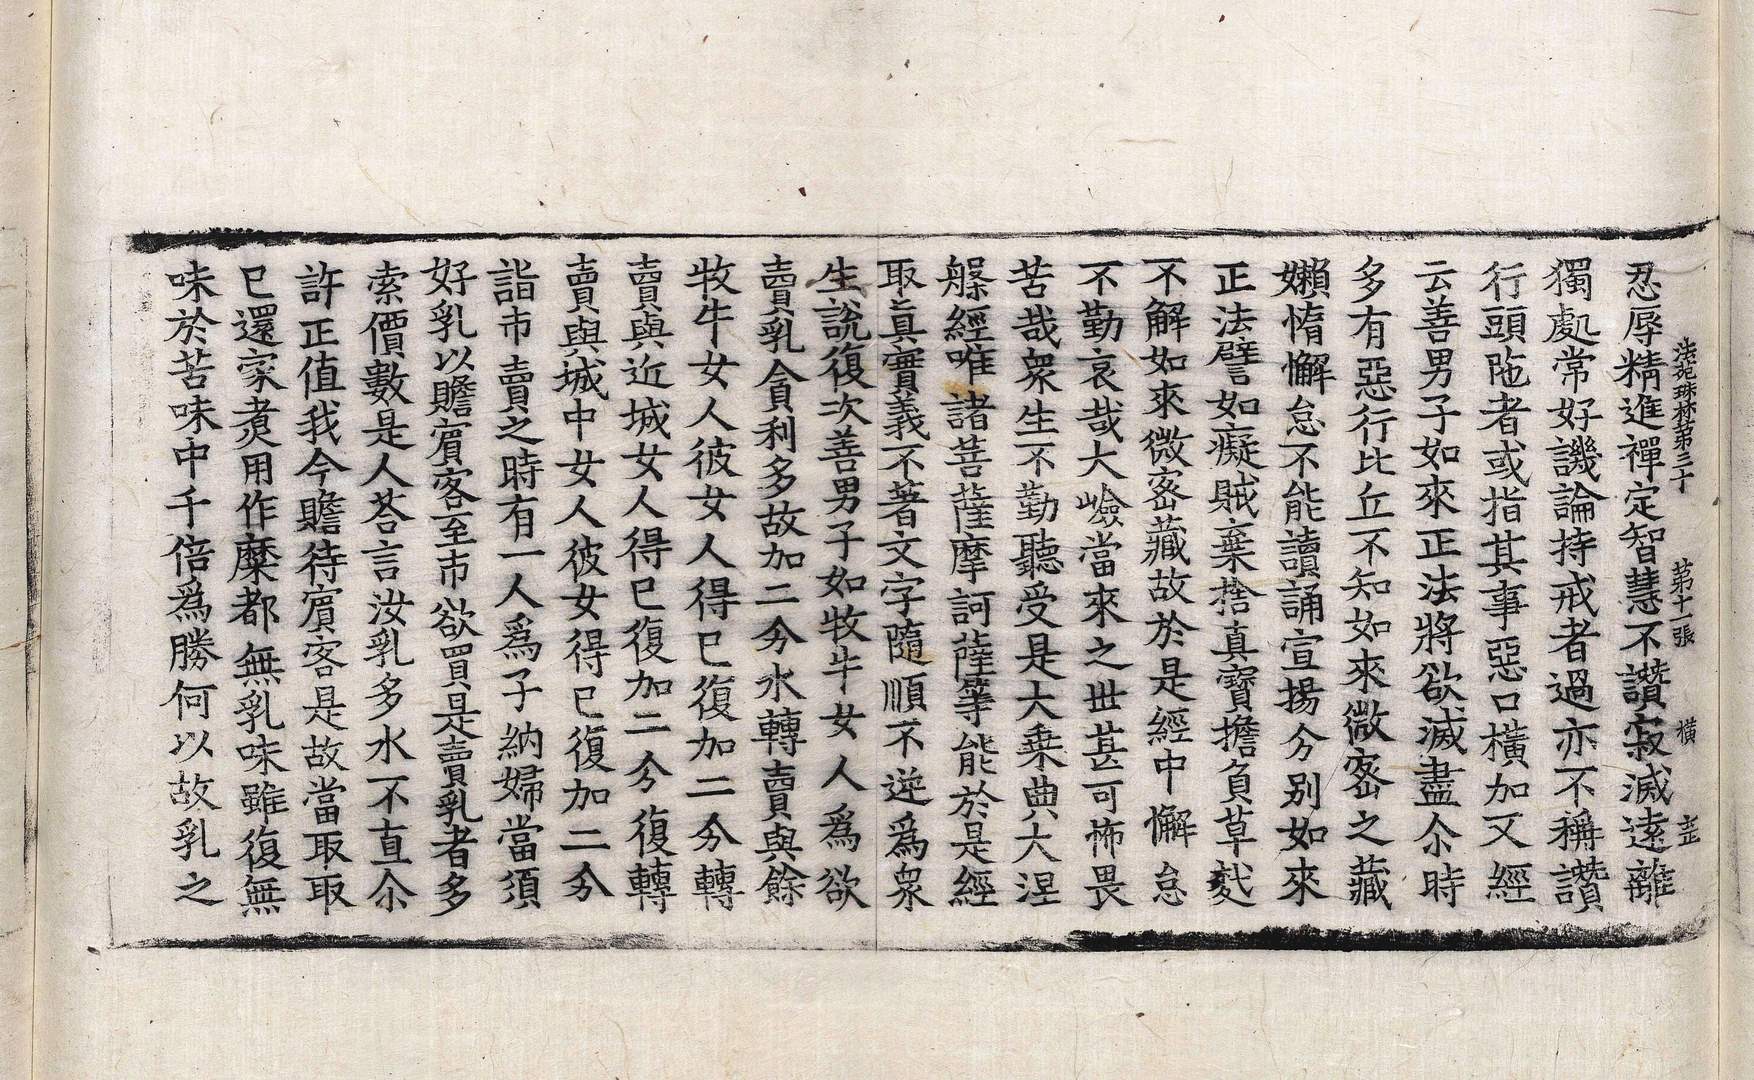 法苑珠林苐三十　苐十一張　橫　𣥺
忍辱精進禪定智慧不讚寂滅遠離
獨處常好譏論持戒者過亦不稱讚
行頭陁者或指其事惡口橫加又經
云善男子如來正法將欲滅盡尒時
多有惡行比丘不知如來微密之藏
嬾惰懈怠不能讀誦宣揚分別如來
正法譬如癡賊棄捨真寶擔負草𪍿
不解如來微密藏故於是經中懈怠
不勤哀哉大嶮當來之世甚可怖畏
苦哉衆生不勤聽受是大乗典大涅
槃經唯諸菩薩摩訶薩等能於是經
取真實義不著文字隨順不逆爲衆
生說復次善男子如牧牛女人爲欲
賣乳貪利多故加二分水轉賣與餘
牧牛女人彼女人得已復加二分轉
賣與近城女人得已復加二分復轉
賣與城中女人彼女得已復加二分
詣市賣之時有一人爲子納婦當須
好乳以贍賓客至市欲買是賣乳者多
索價數是人荅言汝乳多水不直尒
許正值我今贍待賓客是故當取取
已還家煮用作糜都無乳味雖復無
味於苦味中千倍爲勝何以故乳之